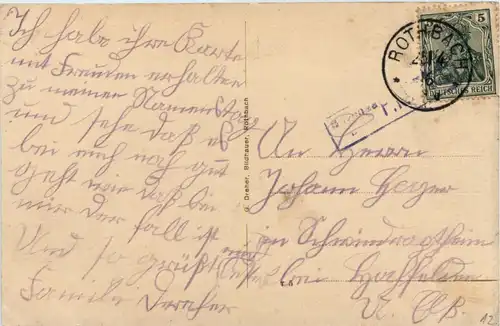 Ich habe ihre Karte
mit Freuden erhalten
zu meinen Namenstag
und sehe daß es
bei euch noch gut
geht wie daß bei
mir der fall ist
Und so grüßt
Familie Dreher
G. Dreher, Bildhauer, Rothbach
ROTHBACH
5
DEUTSCHES REICH
An Herrn
Johann
in Schwindratzheim
bei Hochfelden
U. Els.
12